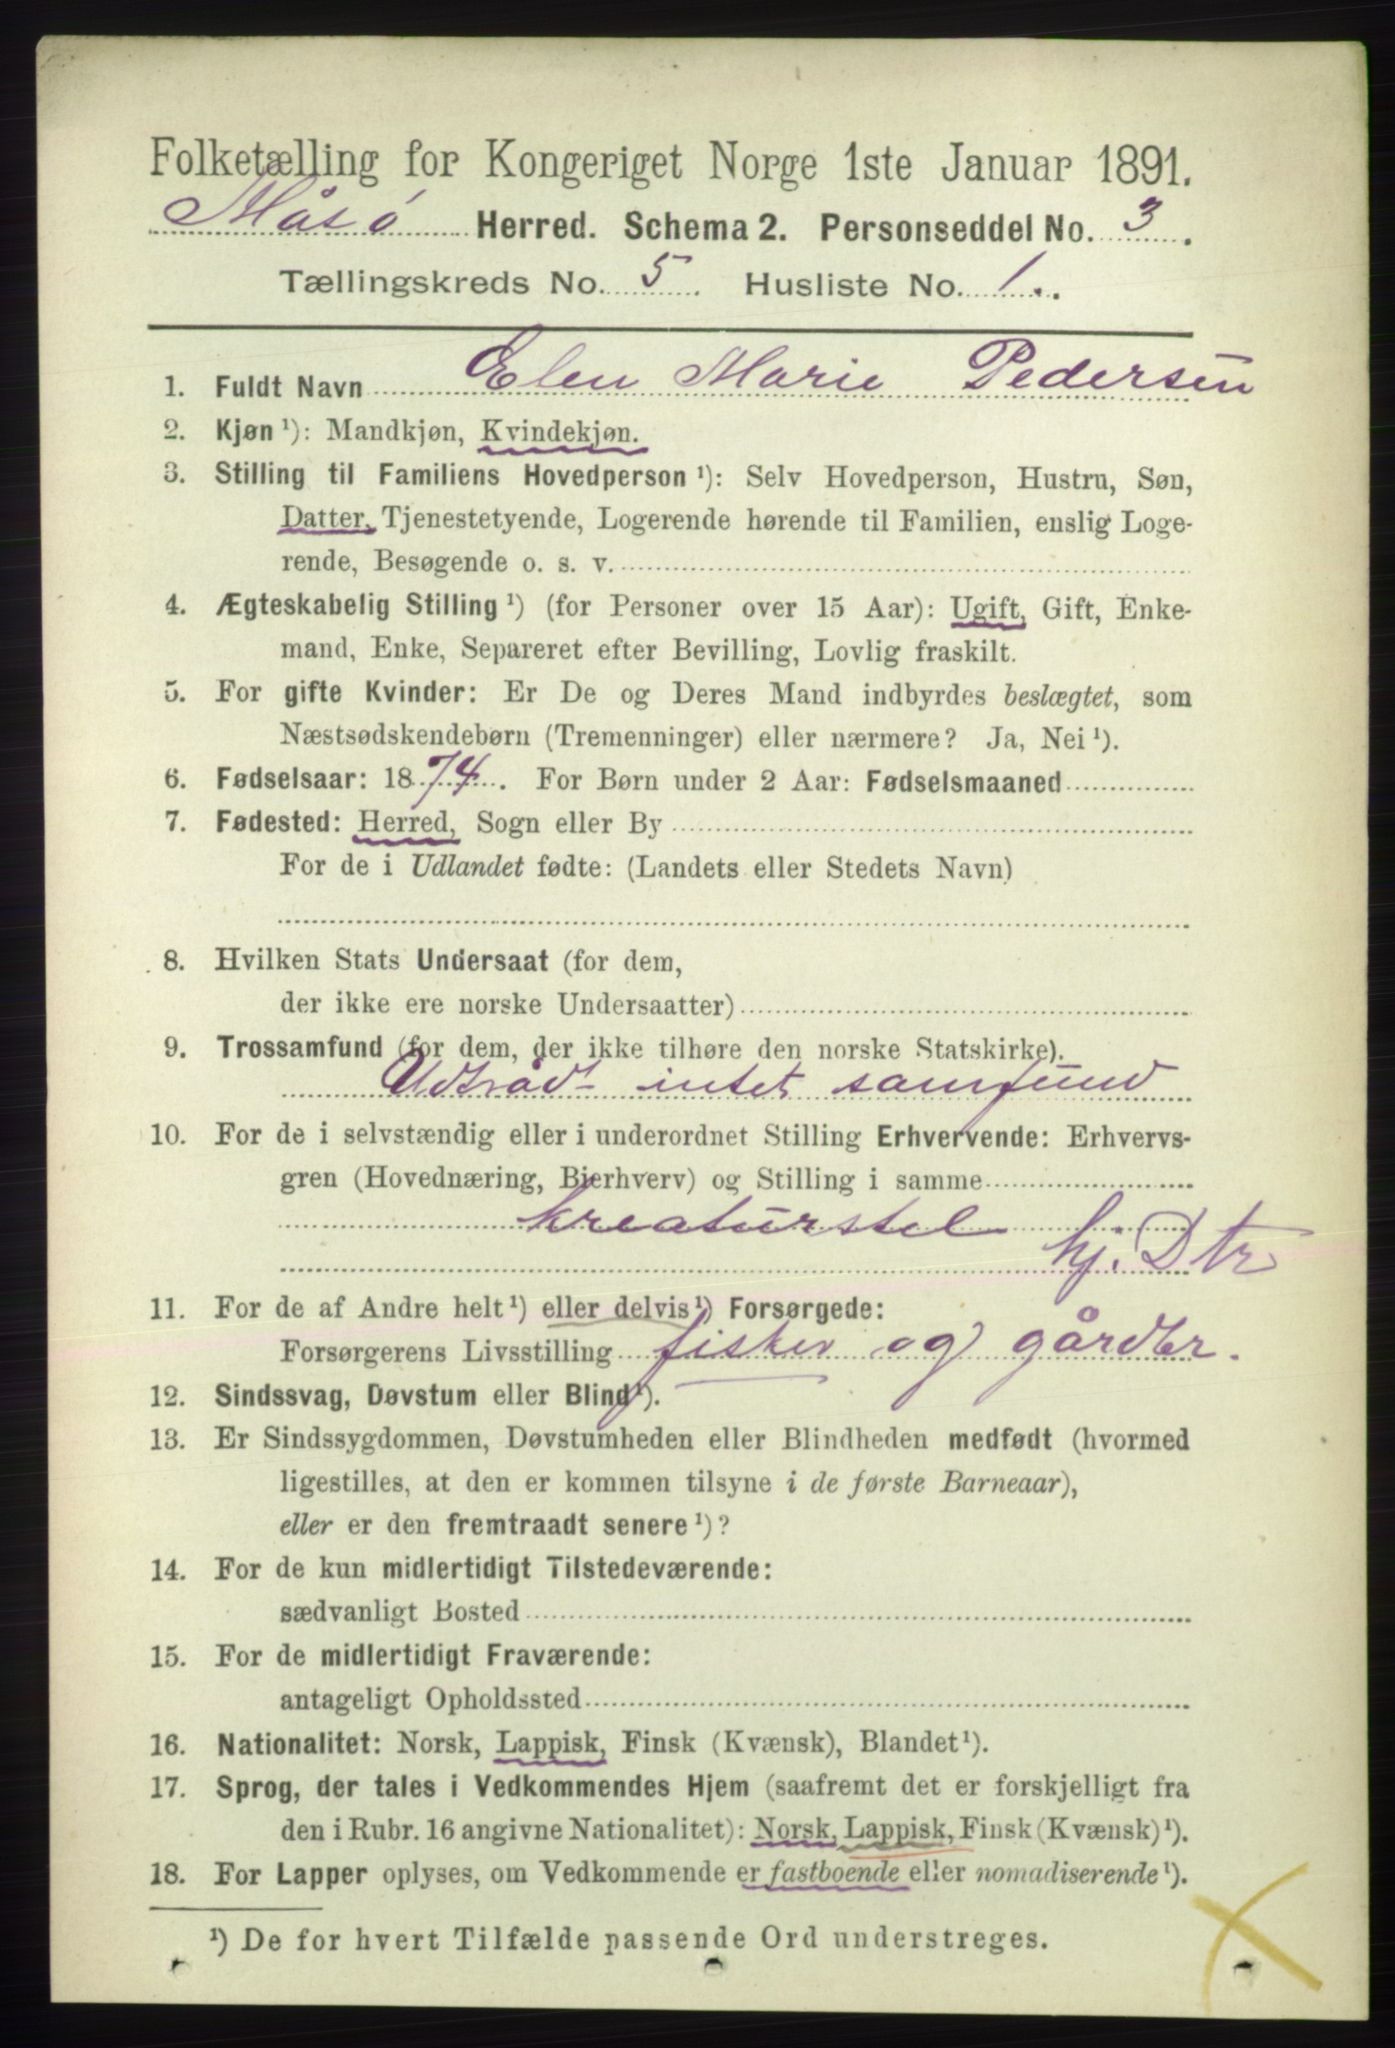 Folketælling for Kongeriget Norge 1ste Januar 1891.
Måsø Herred. Schema 2. Personseddel No. 3.
Tællingskreds No. 5. Husliste No. 1.
1. Fuldt Navn Elen Marie Pedersen
2. Kjøn ¹): Mandkjøn, Kvindekjøn.
3. Stilling til Familiens Hovedperson ¹): Selv Hovedperson, Hustru, Søn,
Datter, Tjenestetyende, Logerende hørende til Familien, enslig Loge-
rende, Besøgende o. s. v.
4. Ægteskabelig Stilling ¹) (for Personer over 15 Aar): Ugift, Gift, Enke-
mand, Enke, Separeret efter Bevilling, Lovlig fraskilt.
5. For gifte Kvinder: Er De og Deres Mand indbyrdes beslægtet, som
Næstsødskendebørn (Tremenninger) eller nærmere? Ja, Nei ¹).
6. Fødselsaar: 1874. For Børn under 2 Aar: Fødselsmaaned
7. Fødested: Herred, Sogn eller By
For de i Udlandet fødte: (Landets eller Stedets Navn)
8. Hvilken Stats Undersaat (for dem,
der ikke ere norske Undersaatter)
9. Trossamfund (for dem, der ikke tilhøre den norske Statskirke).
Udtråd intet samfund
10. For de i selvstændig eller i underordnet Stilling Erhvervende: Erhvervs-
gren (Hovednæring, Bierhverv) og Stilling i samme
kreaturstel
hj. Dtr
11. For de af Andre helt ¹) eller delvis ¹) Forsørgede:
Forsørgerens Livsstilling fisker og gårdbr.
12. Sindssvag, Døvstum eller Blind ¹).
13. Er Sindssygdommen, Døvstumheden eller Blindheden medfødt (hvormed
ligestilles, at den er kommen tilsyne i de første Barneaar),
eller er den fremtraadt senere ¹)?
14. For de kun midlertidigt Tilstedeværende:
sædvanligt Bosted
15. For de midlertidigt Fraværende:
antageligt Opholdssted
16. Nationalitet: Norsk, Lappisk, Finsk (Kvænsk), Blandet ¹).
17. Sprog, der tales i Vedkommendes Hjem (saafremt det er forskjelligt fra
den i Rubr. 16 angivne Nationalitet): Norsk, Lappisk, Finsk (Kvænsk) ¹).
18. For Lapper oplyses, om Vedkommende er fastboende eller nomadiserende ¹).
¹) De for hvert Tilfælde passende Ord understreges.